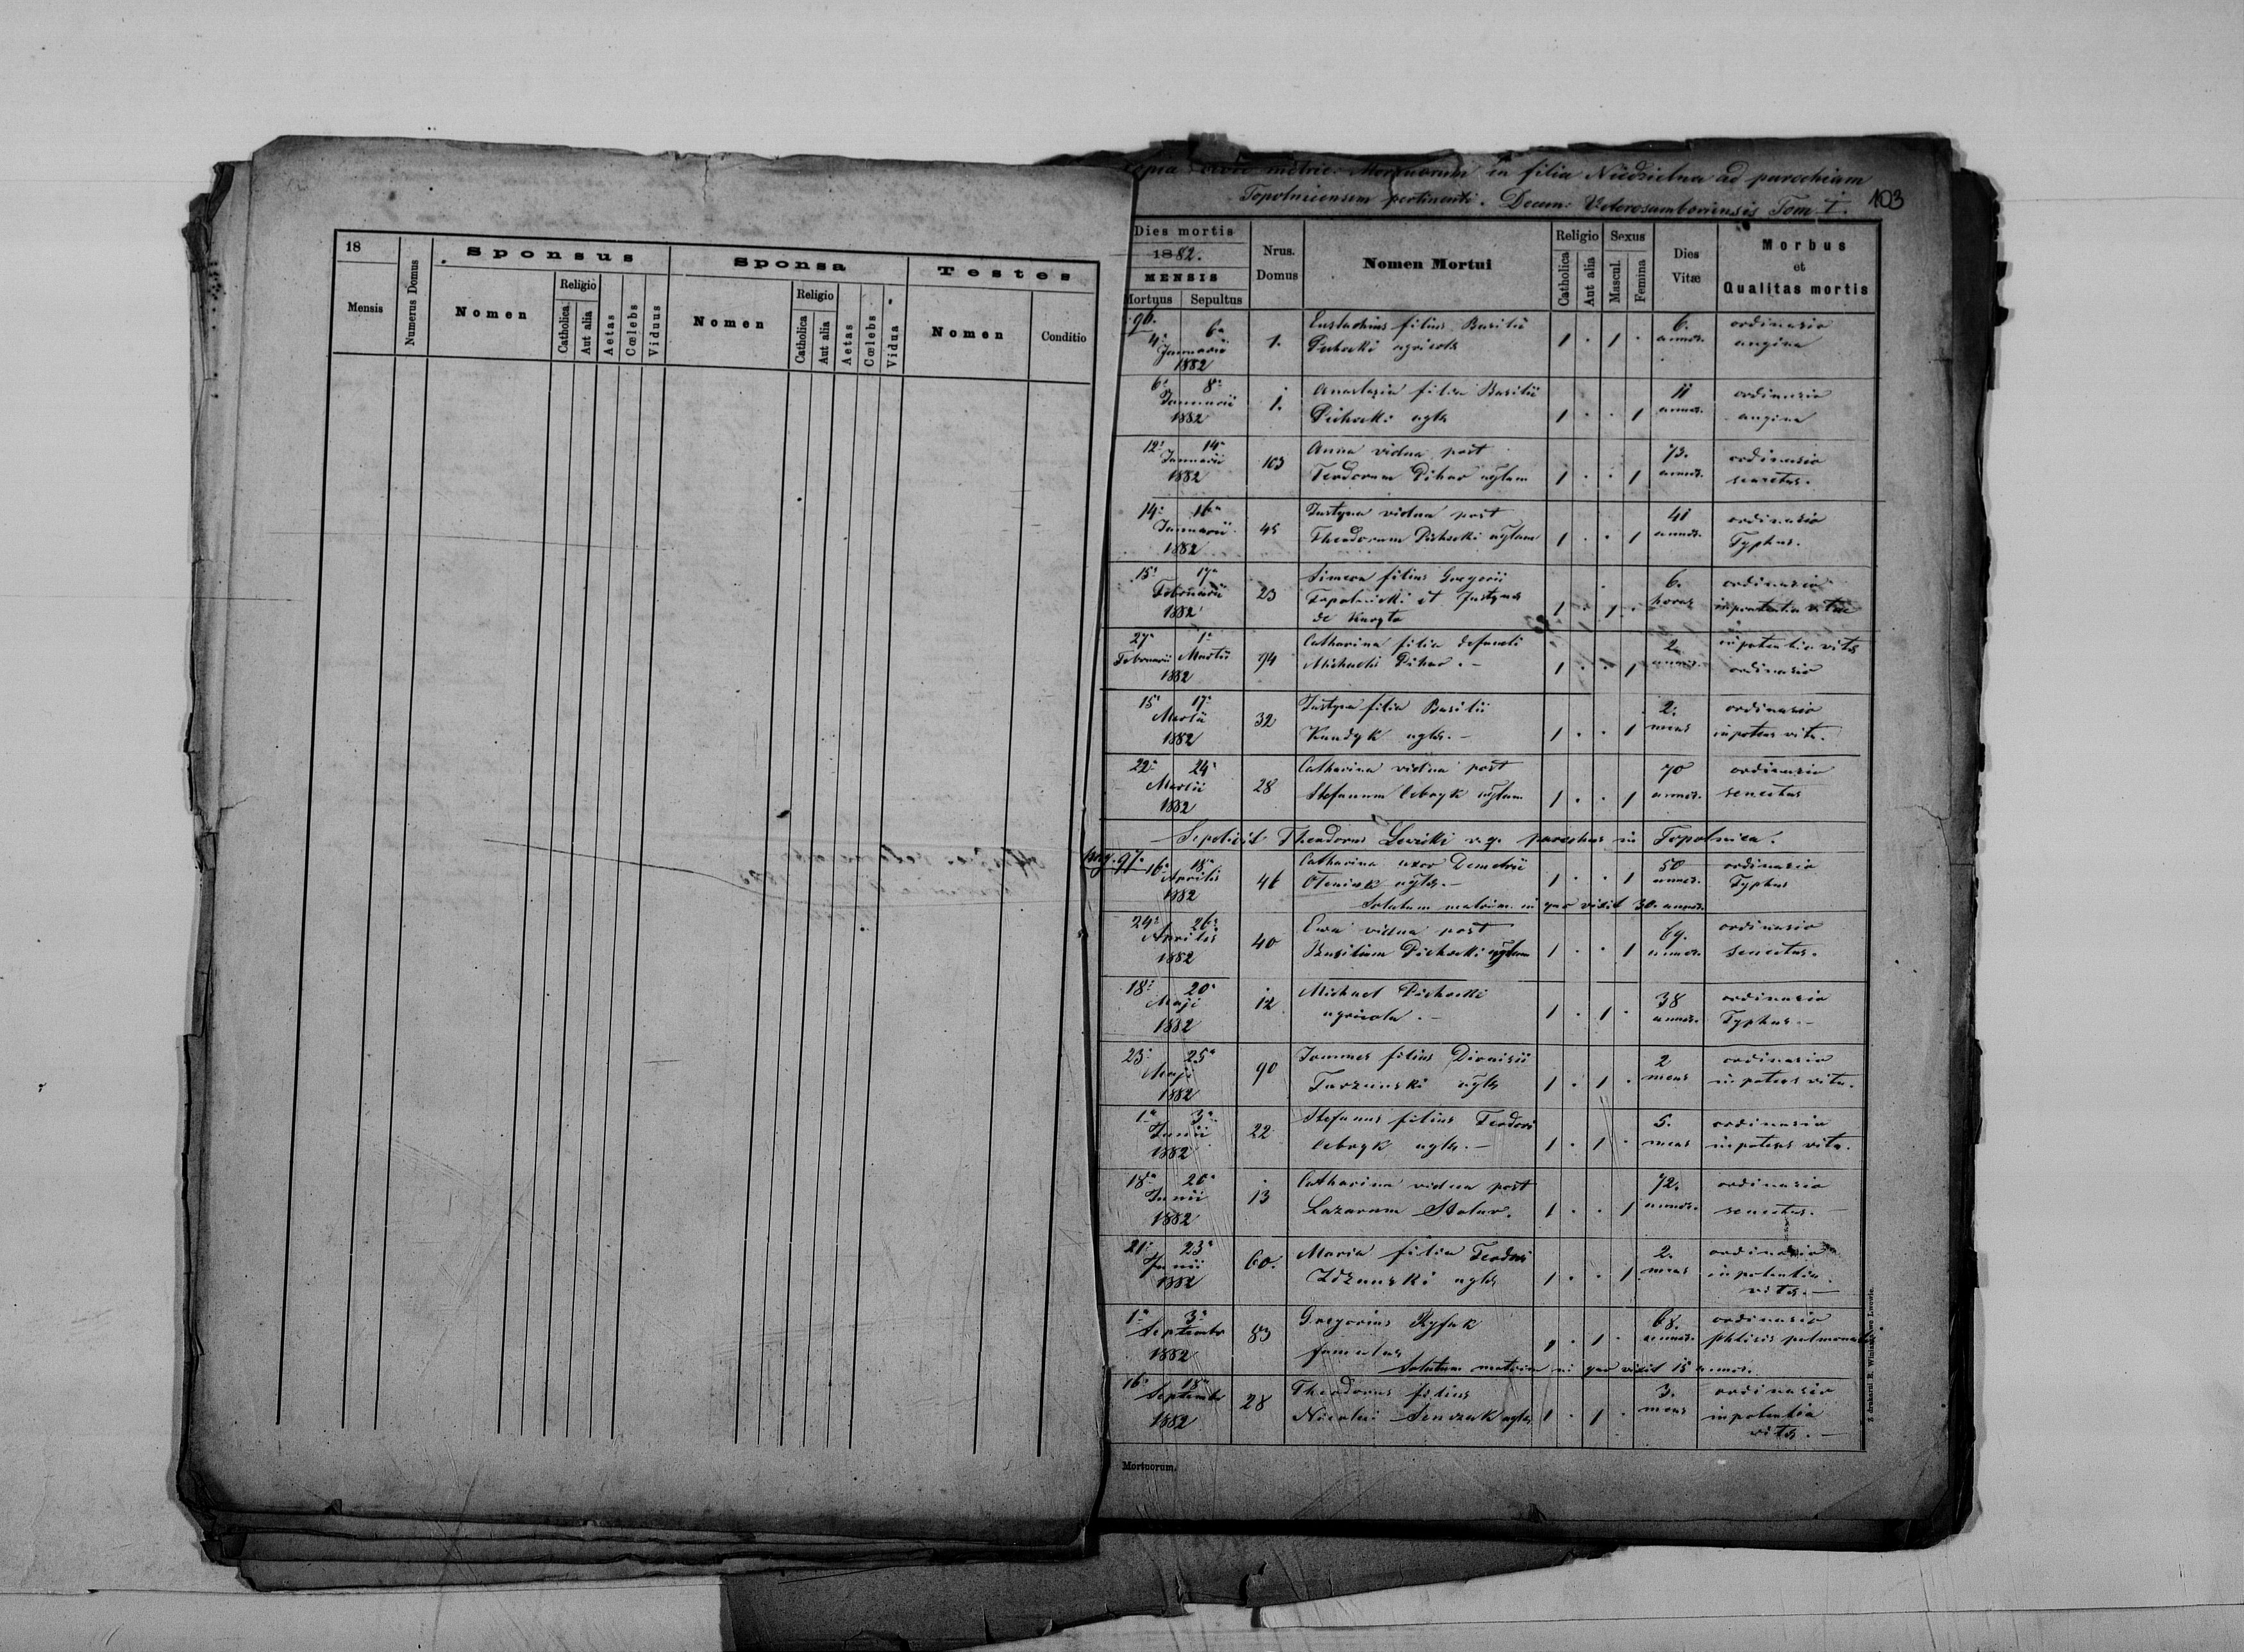 18
Mensis
Numerus Domus
Sponsus
Nomen
Religio
Catholica
Aut alia
Aetas
Cœlebs
Viduus
Sponsa
Nomen
Religio
Catholica
Aut alia
Aetas
Cœlebs
Vidua
Testes
Nomen
Conditio
Mortuorum in filia Niedzielna ad parochiam
Topolnicensem pertinenti. Decan: Veterosamboriensis Tom I.
103
Dies mortis
1882.
MENSIS
Mortuus Sepultus
Nrus.
Domus
Nomen Mortui
Religio
Catholica
Aut alia
Sexus
Mascul.
Femina
Dies
Vitæ
Morbus
et
Qualitas mortis
96.
4. 6a
Januarii
1882
1.
Eustachius filius Basilii
agricolæ
1 . 1 .
6.
annor.
ordinaria
angina
6a 8a
Januarii
1882
1.
Anastasia filia Basilii
aglæ
1 . . 1
11
annor.
ordinaria
angina
12a 14a
Januarii
1882
103
Anna vidua post
Teodorum Pihur aglam
1 . . 1
73.
annor.
ordinaria
senectus.
14a 16a
Januarii
1882
45
Justyna vidua post
Theodorum aglam
1 . . 1
41
annor.
ordinaria
Typhus.
15a 17a
Februarii
1882
23
Simeon filius Gregorii
Topolnicki et Justynæ
de
1 . 1 .
6.
horas
ordinaria
impotentia vitae
27a 1a
Februarii Martii
1882
94
Catharina filia defuncti
Michaelis Pihur. –
1 . . 1
2
impotentia vitæ
ordinaria
15a 17a
Martii
1882
32
Justyna filia Basilii
Kundyk aglæ. –
1 . . 1
2.
mens
ordinaria
impotens vitæ.
22a 24a
Martii
1882
28
Catharina vidua post
Stefanum Cebryk aglam
1 . . 1
70
annor.
ordinaria
senectus
Sepelivit Theodorus Lewicki parochus in Topolnica.
pag. 97.
16a 18a
Aprilis
1882
46
Catharina uxor Demetrii
Oleniak aglæ. –
1 . . 1
50
annor.
ordinaria
Typhus
Solutum matrim. in quo vixit 30. annor.
24a 26a
Aprilis
1882
40
Ewa vidua post
Basilium aglam
1 . . 1
69.
annor.
ordinaria
Senectus.
18a 20a
Maji
1882
12
Michael
agricola. –
1 . 1 .
38
annor.
ordinaria
Typhus. –
23a 25a
Maji
1882
90
Joannes filius Dionisii
Turzanski aglæ
1 . 1 .
2
mens
ordinaria
impotens vitæ.
1a 3a
Junii
1882
22
Stefanus filius Teodori
Cebryk aglæ. –
1 . 1 .
5.
mens
ordinaria
impotens vitæ.
18a 20a
Junii
1882
13
Catharina vidua post
Lazarum Stolar.
1 . . 1
72.
annor.
ordinaria
senectus. –
21a 23a
Junii
1882
60.
Maria filia Teodori
aglæ
1 . . 1
2.
mens
ordinaria
impotentia
vitæ. –
1a 3a
Septembr
1882
83
Gregorius
famulus
1 . 1 .
68.
annor.
ordinaria
phtisis pulmonalis
Solutum matrim in quo vixit 15 annor.
16a 18a
Septembr
1882
28
Theodorus filius
Nicolai aglæ
1 . 1 .
3.
mens
ordinaria
impotentia
vitæ. –
Mortuorum.
Z drukarni E. Winiarza we Lwowie.